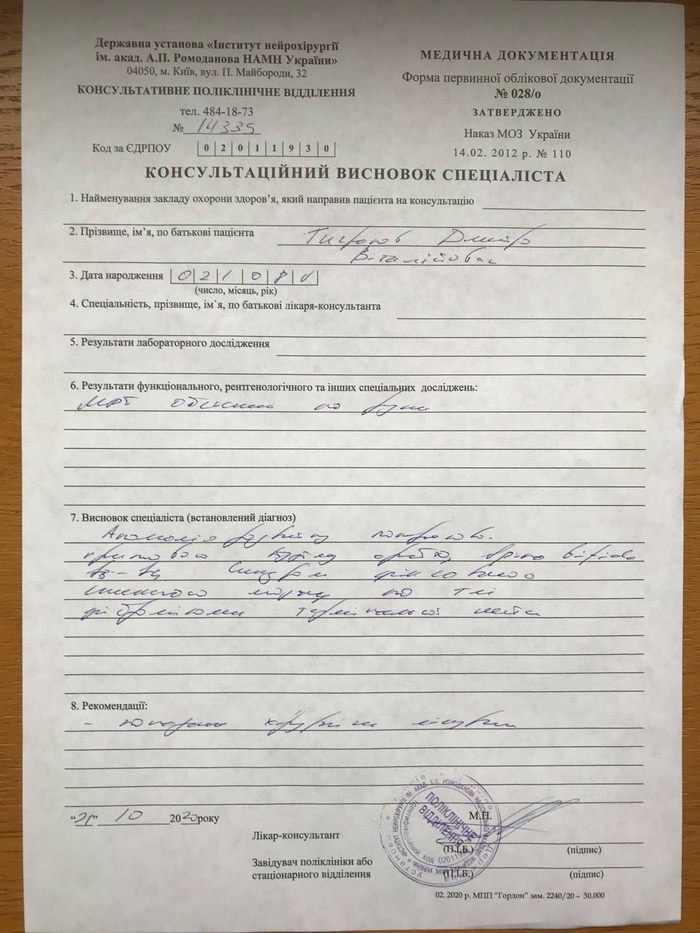 Державна установа «Інститут нейрохірургії
ім. акад. А.П. Ромоданова НАМН України»
04050, м. Київ, вул. П. Майбороди, 32
КОНСУЛЬТАТИВНЕ ПОЛІКЛІНІЧНЕ ВІДДІЛЕННЯ
тел. 484-18-73
№ 14339
Код за ЄДРПОУ 0 2 0 1 1 9 3 0
МЕДИЧНА ДОКУМЕНТАЦІЯ
Форма первинної облікової документації
№ 028/о
ЗАТВЕРДЖЕНО
Наказ МОЗ України
14.02. 2012 р. № 110
КОНСУЛЬТАЦІЙНИЙ ВИСНОВОК СПЕЦІАЛІСТА
1. Найменування закладу охорони здоров’я, який направив пацієнта на консультацію
2. Прізвище, ім’я, по батькові пацієнта Дмитро
Віталійович
3. Дата народження
(число, місяць, рік)
4. Спеціальність, прізвище, ім`я, по батькові лікаря-консультанта
5. Результати лабораторного дослідження
6. Результати функціонального, рентгенологічного та інших спеціальних досліджень:
МРТ
7. Висновок спеціаліста (встановлений діагноз)
Аномалія розвитку попереково-
крижового відділу хребта, spina bifida
спинного мозку на тлі
термінальної нитки
8. Рекомендації:
-
10 2020 року
М.П.
Лікар-консультант
(П.І.Б.) (підпис)
Завідувач поліклініки або
стаціонарного відділення
(П.І.Б.) (підпис)
ПОЛІКЛІНІЧНЕ
ВІДДІЛЕННЯ
02. 2020 р. МПП “Гордон” зам. 2240/20 – 30.000